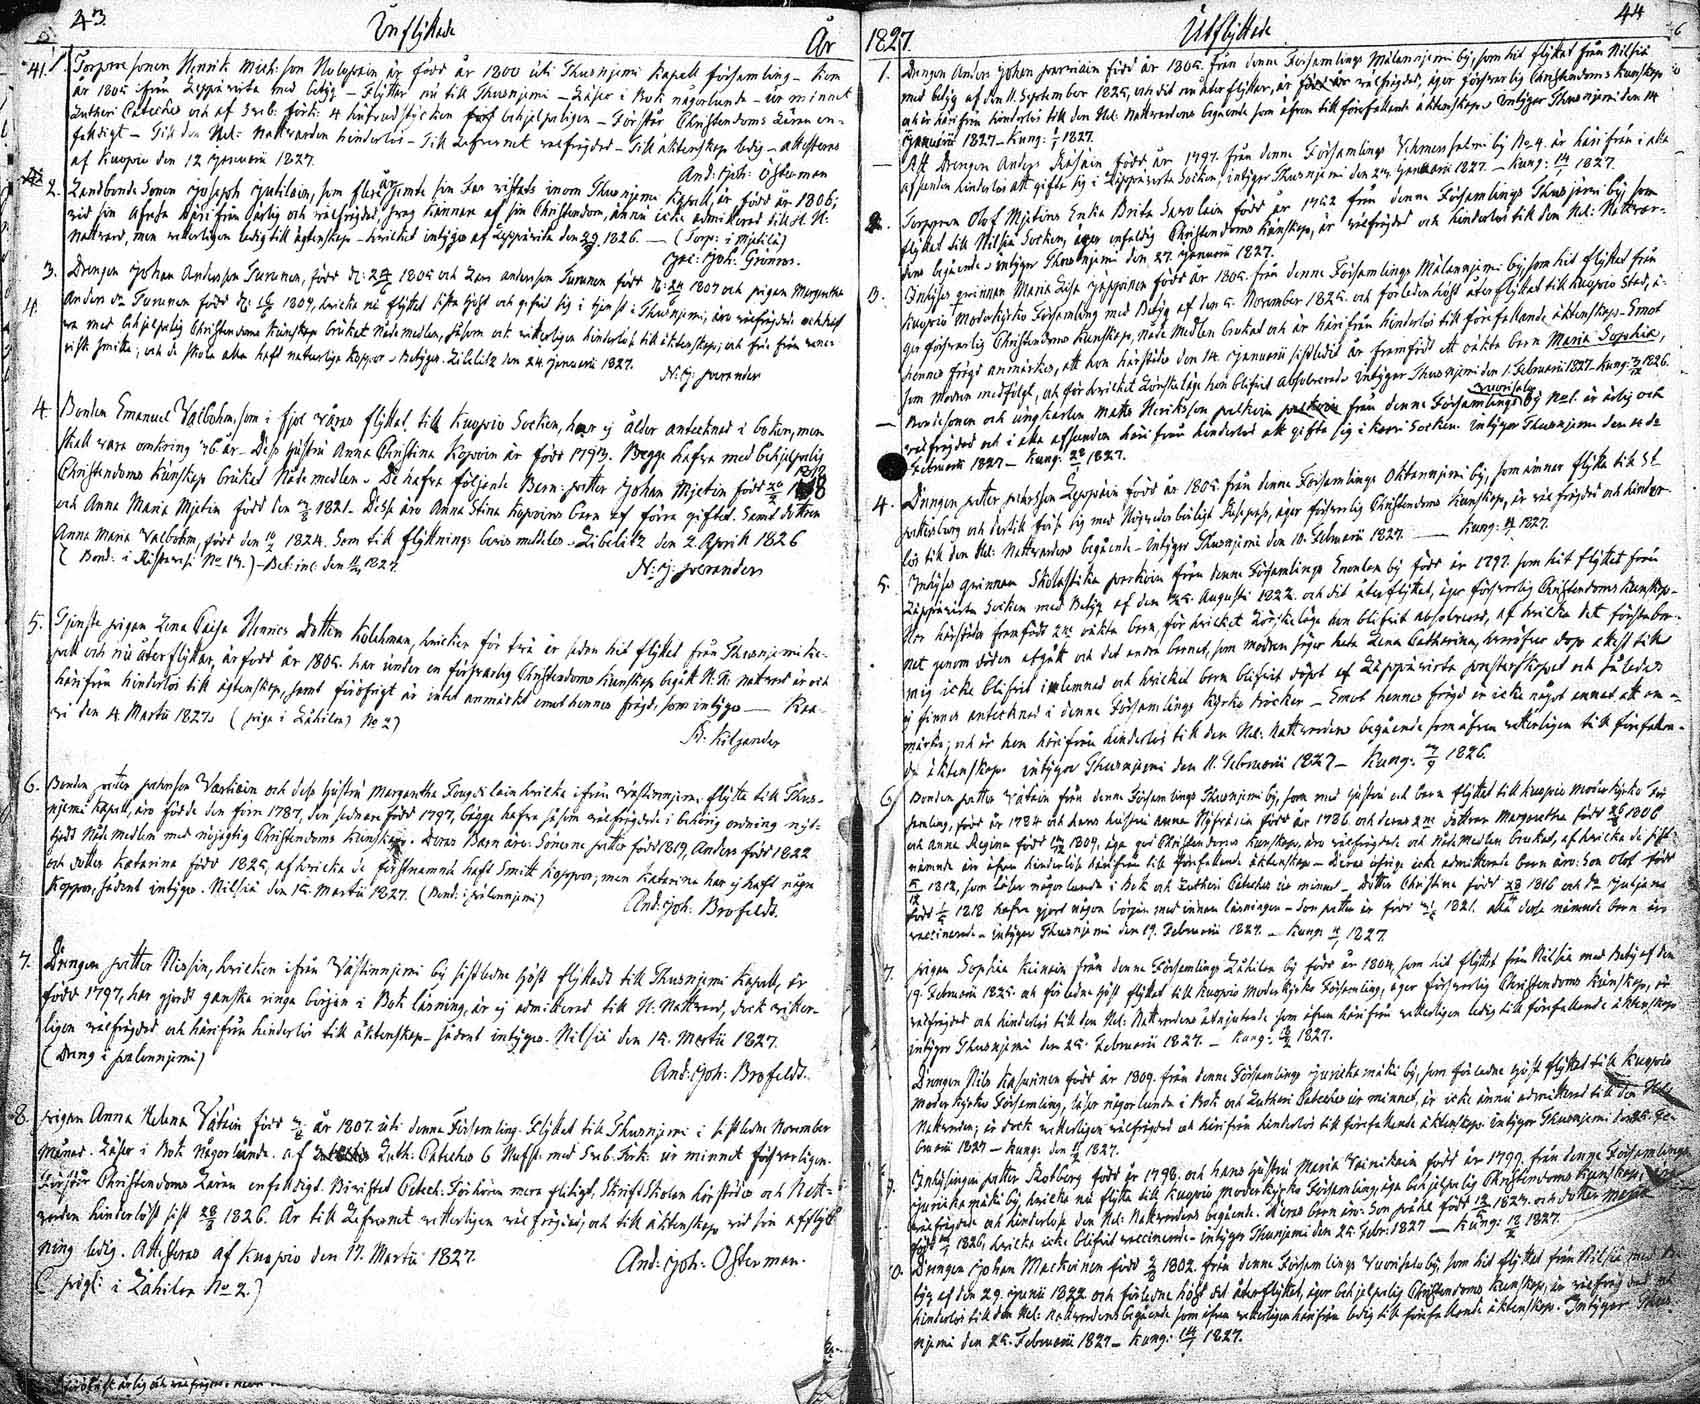 43.
Inflyttade
År
41. 1. Torpare sonen Henrik Mich:son Holopain är född år 1800 uti Thusnjemi Kapell församling – kom
år 1805 ifrån Leppävirta med betyg – Flyttar nu till Thusnjemi – Läser i Bok någorlunda – ur minnet
Lutheri Cateches och af Sveb: förk: 4 hufvudstycken behjelpeligen – Förstår Christendoms Läran en-
faldigt – Till den Hel: Nattvarden hinderlös – Till Lefvernet välfrägdad – Till äktenskap ledig – attesteras
af Kuopio den 12 Januarii 1827.
And: Joh: Österman
2. Landbonde Sonen Joseph Jutilain, som flere år jemte sin Far vistats inom Thusnjemi Kapell, är född år 1806;
vid sin afresa härifrån ärlig och välfrägdad, svag kännare af sin Christendom, ännu icke admitterad till H: H:
Nattvard, men vitterligen ledig till ägtenskap – hvilket intygas af Leppävirta den 1826. – (Torp: i Miettilä)
Joh: Grönros.
3. Drengen Johan Andersson Turunen, född d: 1805 och Lars Andersson Turunen född d: 1807 och pigan Margaretha
Anders dr Turunen född d: 1809, hvilka nu flyttat sista höst och gifvit sig i tjenst i Thusnjemi, äro välfrägdade och haf
va med behjelpelig Christendoms kunskap brukat Nådemedlen, såsom ock vitterligen hinderlösa till äktenskap; och fria från vene-
risk smitta; och de skola alla haft naturliga koppor. Betygar. Libelitz den 24 Januarii 1827.
N: J: Perander
4. Bonden Emanuel Valbohm, som i fjol våras flyttat till Kuopio Socken, har ej ålder antecknad i boken, men
skall vara omkring 46 år – Dess hustru Anna Christina Kopoin är född 1793. Begge hafva med behjelpelig
Christendoms Kunskap brukat Nådemedlen. De hafva följande Barn: Petter Johan Mjetin född 1818
och Anna Maria Mjetin född den 1821. Desse äro Anna Stina Kopoins barn af förra giftet. Samt dottren
Anna Maria Valbohm, född den 1824. Som till flyttnings bevis meddeles. Libelitz den 2 April 1826
(Bond: i Ristavesi No 14.) – Bet: inl: den 1827.
N: J: Perander
5. Tjenste pigan Lena Caisa Henrics dotter Kolehman, hvilken för två år sedan hit flyttat från Thusnjemi Ka-
pell och nu återflyttar, är född år 1805. har under en försvarlig Christendoms kunskap begått H. H. Nattvard är ock
härifrån hinderlös till ägtenskap, samt föröfrigt är intet anmärkt emot hennes frägd; som intygas – Kaa-
vi den 4 Martii 1827. (piga i Lähilax) No 2)
B: Kiljander
6. Bonden Petter Petersson Vartiain och dess hustru Margaretha Tougdilain hvilka ifrån Västinnjemi flytta till Thus-
njemi Kapell, äro födde den förra 1787, den sednare född 1797, bägge hafva såsom välfrägdade i behörig ordning nyt-
tjadt Nådemedlen med nöjagtig Christendoms kunskap. Deras Barn äro: Sönerne Petter född 1819, Anders född 1822
och dotter Katarina född 1825, af hvilka de förstnämnde haft Smitt koppor; men Katarina har ej haft några
koppor, sådant intygas. Nilsiä den 15 Martii 1827. (Bond: i Palonnjemi)
And: Joh: Brofeldt.
7. Drengen Petter Nissin, hvilken ifrån Västinnjemi by sistledne höst flyttadt till Thusnjemi Kapell, är
född 1797, har gjordt ganska ringa början i Bok läsning, är ej admitterad till H: Nattvard, dock vitter-
ligen välfrägdad och härifrån hinderlös till äktenskap – sådant intygas. Nilsiä den 15 Martii 1827.
(Dreng i Palonnjemi)
And: Joh: Brofeldt.
8. Pigan Anna Helena Vätäin född år 1807 uti denna Församling. Flyttat till Thusnjemi i sistledne November
månad. Läser i Bok Någorlunda. af Luth: Cateches 6 Hufst: med Sveb: Förk: ur minnet försvarligen.
Förstår Christendoms Läran enfaldigt. Bivistat Catech: Förhören mera flitigt. Skriftskolan härstädes och Natt-
varden hinderlöst sist 1826. Är till Lefvernet vitterligen välfrägdad, och till äktenskap vid sin afflytt
ning ledig. Attesteras af Kuopio den 17. Martii 1827.
(pig: i Lähilax No 2.)
And: Joh: Österman.
1827.
Utflyttade
44
1. Drengen Anders Johan född år 1805 från denne Församlings Mälannjemi by, som hit flyttat från Nilsiä
med betyg af den 11. September 1825, och dit nu återflyttar, är välfrägdad, äger försvarlig Christendoms kunskap
och är härifrån hinderlös till den Hel: Nattvardens begående som äfven till förefallande äktenskap. Intygar Thusnjemi den 14
Januarii 1827 – Kung: 1827.
– Att Drengen Anders Räsäin född år 1797. från denne Församlings Vehmersalmi by No 4. är härifrån i alla
afseenden hinderlös att gifta sig i Leppävirta Socken, intygar Thusnjemi den Januarii 1827. – Kung: 1827.
2. Torparen Olof Mjetins Enka Brita Savolain född år 1762 från denne Församlings Thusnjemi by som
flyttat till Nilsiä Socken, äger enfaldig Christendoms kunskap, är välfrägdad och hinderlös till den Hel: Nattvar-
dens begående. Intygar Thusnjemi den 27. Januarii 1827.
3. Inhyses qvinnan Maria Lisa född år 1805. från denne Församlings Mälannjemi by, som hit flyttat från
Kuopio Moderkyrko Församling med Betyg af den 5. November 1825. och förleden höst återflyttat till Kuopio Stad, ä-
ger försvarlig Christendoms kunskap, nåde Medlen brukat och är härifrån hinderlös till förefallande äktenskap – Emot
hennes frägd anmärkes, att hon härstädes den 14. Januarii sistledit år framfödt ett oäkta barn Maria Sophia,
som modren medfölgt, och för hvilket lönskaläge hon blifvit absolverad. Intygar Thusnjemi den 1. Februarii 1827. Kung: 1826.
– Bondesonen och ungkarlen Matts Henriksson Pelkoin från denne Församlings Vuorisalo by No 1. är ärlig och
välfrägdad och i alla afseenden härifrån hinderlös att gifta sig i Kavi Socken. Intygar Thusnjemi den
Februarii 1827 – Kung: 1827.
4. Drengen Petter Pehrsson Leppäin född år 1805 från denne Församlings Oktannjemi by, som ämnar flytta till St
Petersburg och dertill försett sig med Höga vederbörligt Respass, äger försvarlig Christendoms kunskap, är välfrägdad och hinder-
lös till den Hel: Nattvardens begående – Intygar Thusnjemi den 10. Februarii 1827. – Kung: 1827.
5. Inhyses qvinnan Skolastika från denne Församlings Enonlax by född år 1797. som hit flyttat från
Leppävirta Socken med Betyg af den Augusti 1822. och dit återflyttat, äger försvarlig Christendoms kunskap –
Har härstädes framfödt 2ne oäkta barn, för hvilket Lönskaläge hon blifvit absolverad, af hvilka det första bar-
net genom döden afgått och det andra barnet, som modren säger heta Lena Catharina, hvaröfver dop attest till
mig icke blifvit inlemnad och hvilket barn blifvit döpt af Leppävirta presterskapet och således
ej finnes antecknad i denne Församlings Kyrko böcker – Emot hennes frägd är icke något annat att an-
märka; och är hon härifrån hinderlös till den Hel: Nattvardens begående som äfven vitterligen till förefallan-
de äktenskap. Intygar Thusnjemi den 11. Februarii 1827 – Kung: 1826.
6. Bonden Petter Vätäin från denne Församlings Thusnjemi by, som med hustru och barn flyttat till Kuopio Moderkyrko För-
samling, född år 1784 och hans hustru Anna född år 1786 och deras 2ne döttrar Margaretha född 1806
och Anna Regina född 1809, äga god Christendoms kunskap, äro välfrägdade och Nåde medlen brukat, af hvilka de sist-
nämnde äro äfven hinderlösa härifrån till förefallande äktenskap – Deras öfriga icke admitterade barn äro: Son Olof född
1812, som läser någorlunda i Bok och Lutheri Cateches ur minnet – Dotter Christina född 1816 och Dr Juliana
född 1818 hafva gjort någon början med innan läsningen – Son Petter är född 1821. alla desse nämnde barn äro
vaccinerade – intygar Thusnjemi den 19. Februarii 1827. – Kung: 1827
7. Pigan Sophia Keinäin från denne Församlings Lähilax by född år 1804, som hit flyttat från Nilsiä med Betyg af den
19. Februarii 1825. och förledne höst flyttat till Kuopio Moderkyrko Församling, äger försvarlig Christendoms kunskap, är
välfrägdad och hinderlös till den Hel: Nattvardens åtnjutande som äfven härifrån vitterligen ledig till förefallande äktenskap
intygar Thusnjemi den 25. Februarii 1827. – Kung: 1827.
Drengen Nils Kasurinen född år 1809. från denne Församlings Juvickamäki by, som förledne höst flyttat till Kuopio
Moderkyrko Församling, läser någorlunda i Bok och Lutheri Cateches ur minnet, är icke ännu admitterad till den Hel:
Nattvarden; är dock vitterligen välfrägdad och härifrån hinderlös till förefallande äktenskap. Intygar Thusnjemi den 25. Fe-
bruarii 1827 – Kung: den 1827.
9. Inhysingen Petter Skotberg född år 1798. och hans hustru Maria Väinikain född år 1799. från denne Församlings
Juvickamäki by, hvilka nu flytta till Kuopio moderkyrko Församling, äga behjelpelig Christendoms kunskap, äro
välfrägdade och hinderlösa den Hel: Nattvardens begående. Deras barn äro: Son född 1823. och dotter Maria
född 1826, hvilka icke blifvit vaccinerade – intygar Thusnjemi den 25. Febr: 1827 – Kung: 1827.
10. Drengen Johan Mackoinen född 1802. från denne Församlings Vuorisalo by, som hit flyttat från Nilsiä med Be-
tyg af den 29. Junii 1822 och förledne höst dit återflyttat, äger behjelpelig Christendoms kunskap, är välfrägdad och
hinderlös till den Hel: Nattvardens begående som äfven vitterligen härifrån ledig till förefallande äktenskap. Intygar Thus-
njemi den 25. Februarii 1827 – Kung: 1827.